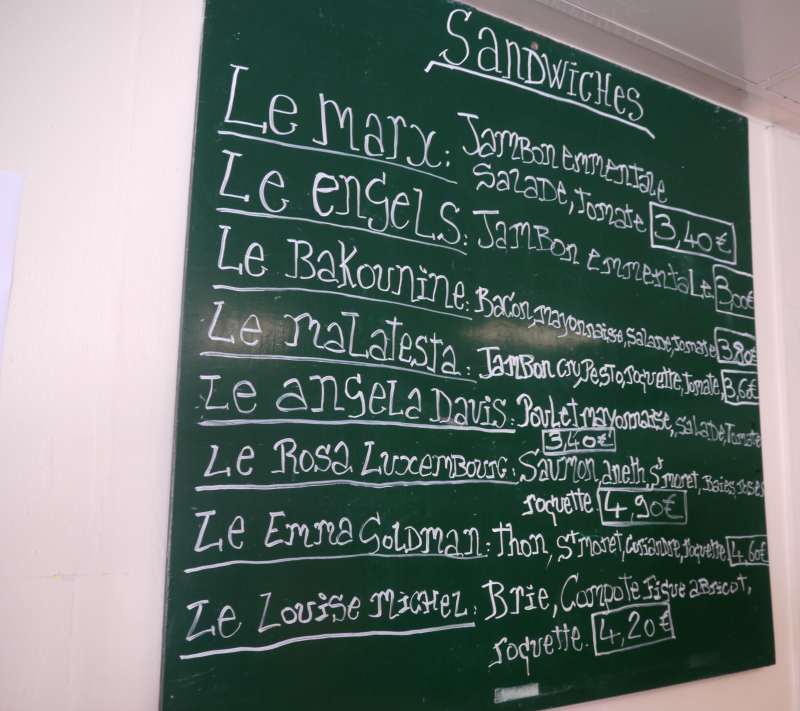 SANDWICHES
Le marx: JAMBON emmentale
SALADE, tomate 3,40€
Le engels: JAMBON emmentale 3,00€
Le BAKOUNINE: BACON, mayonnaise, SALADE, tomate 3,80€
Le MALATESTA: JAMBON CRU, Pesto, roquette, tomate 3,60€
Le ANGELA DAVIS: Poulet mayonnaise, SALADE, Tomate
3,40€
Le ROSA LUXEMBOURG: SAUMON, aneth, St moret, BAIES roses
roquette. 4,90€
Le EMMA GOLDMAN: Thon, St moret, Coriandre, roquette 4,60€
Le LOUISE MICHEL: BRIE, Compote Figue ABRICOT,
roquette. 4,20€